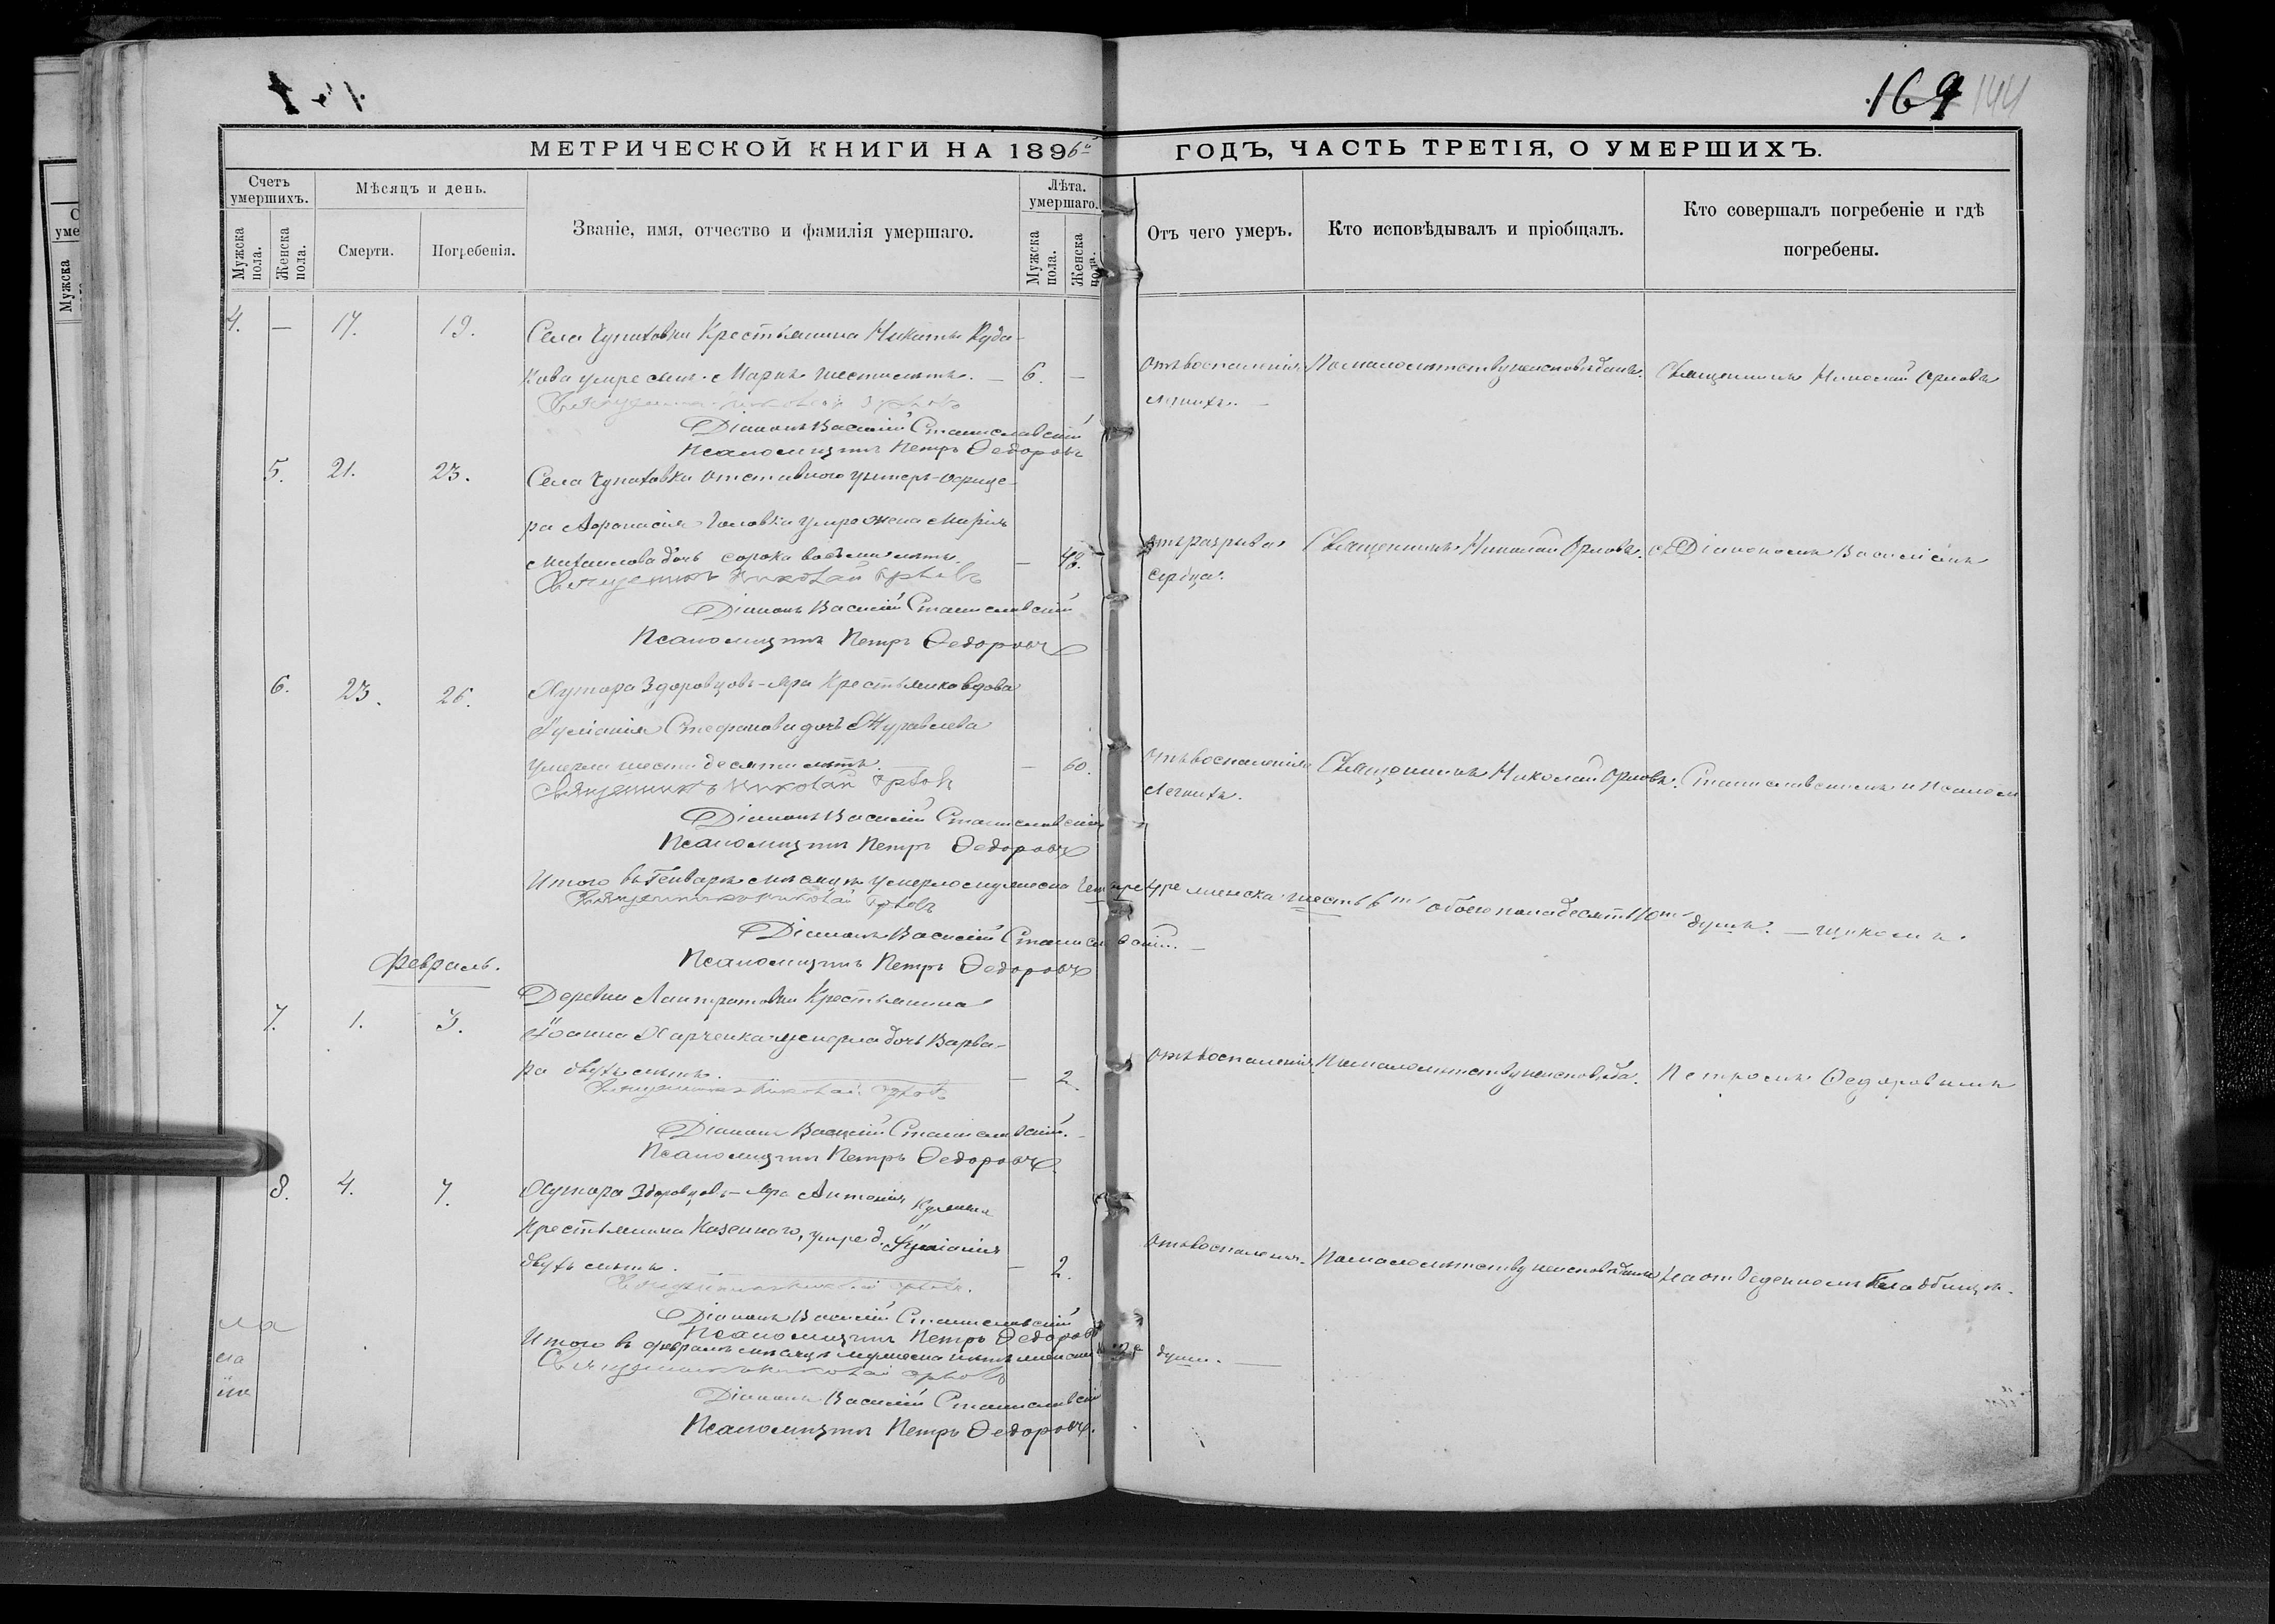 169 144
МЕТРИЧЕСКОЙ КНИГИ НА 1896й ГОДЪ, ЧАСТЬ ТРЕТІЯ, О УМЕРШИХЪ.
Счетъ умершихъ.
Мужска пола.
Женска пола.
Мѣсяцъ и день.
Смерти.
Погребенія.
Званіе, имя, отчество и фамилія умершаго.
Лѣта. умершаго.
Мужска пола.
Женска пола.
Отъ чего умеръ.
Кто исповѣдывалъ и пріобщалъ.
Кто совершалъ погребеніе и гдѣ погребены.
4. — 17. 19. Села Чупаховки Крестьянина Никиты
кова умре сынъ Маркъ шести лѣтъ. — 6. —
Отъ воспаленія легкихъ. —
По малолѣтству неисповѣданъ.
Священникъ Николай Орловъ
Священникъ Николай Орловъ
Діаконъ Василій Станиславскій
Псаломщикъ Петръ Ѳедоровъ
5. 21. 23. Села Чупаховки отставного унтеръ-офице-
ра Афанасія Головка умре жена Марія
Михаилова дочь сорока восьми лѣтъ. — 48.
Отъ разрыва сердца.
Священникъ Николай Орловъ.
съ Діакономъ Василіемъ
Священникъ Николай Орловъ
Діаконъ Василій Станиславскій
Псаломщикъ Петръ Ѳедоровъ
6. 23. 26. Хутора Здоровцовъ-Яра Крестьянка вдова
Іуліанія Стефанова дочь Журавлева
умерла шестидесяти лѣтъ. — 60.
Отъ воспаленія легкихъ.
Священникъ Николай Орловъ.
Станиславскимъ и Псалом
Священникъ Николай Орловъ
Діаконъ Василій Станиславскій
Псаломщикъ Петръ Ѳедоровъ
Итого въ Генварѣ мѣсяцѣ умерло мужеска четыре женска шесть 6ть обоего пола десять 10ть душъ. — щикомъ
Священникъ Николай Орловъ
Діаконъ Василій Станиславскій. —
Псаломщикъ Петръ Ѳедоровъ
Февраль.
7. 1. 3. Деревни Крестьянина
Іоанна Харченка умерла дочь Варва-
ра двухъ лѣтъ. — 2.
Отъ воспаленія.
По малолѣтству неисповѣда.
Петромъ Ѳедоровымъ
Священникъ Николай Орловъ
Діаконъ Василій Станиславскій.
Псаломщикъ Петръ Ѳедоровъ.
8. 4. 7. Хутора Здоровцовъ-Яра Антонія
Крестьянина Казеннаго, умре д. Іуліанія
двухъ лѣтъ. — 2.
Отъ воспаленія.
По малолѣтству неисповѣдана
На отведенномъ кладбищѣ.
Священникъ Николай Орловъ.
Діаконъ Василій Станиславскій
Псаломщикъ Петръ Ѳедоровъ
Итого въ февралѣ мѣсяцѣ мужеска нѣтъ женска души. —
Священникъ Николай Орловъ
Діаконъ Василій Станиславскій
Псаломщикъ Петръ Ѳедоровъ.